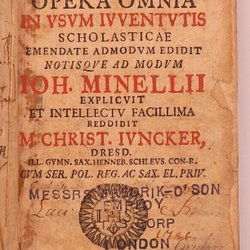 OPERA OMNIA
IN VSVM IVVENTVTIS
SCHOLASTICAE
EMENDATE ADMODVM EDIDIT
NOTISQVE AD MODVM
IOH. MINELLII
EXPLICVIT
ET INTELLECTV FACILLIMA
REDDIDIT
M. CHRIST. IVNCKER,
DRESD.
ILL. GYMN. SAX. HENNEB. SCHLEVS. CON-R.
CVM SER. POL. REG. AC SAX. EL. PRIV.
MESSR
DRIK-O'SON
ORP
LONDON